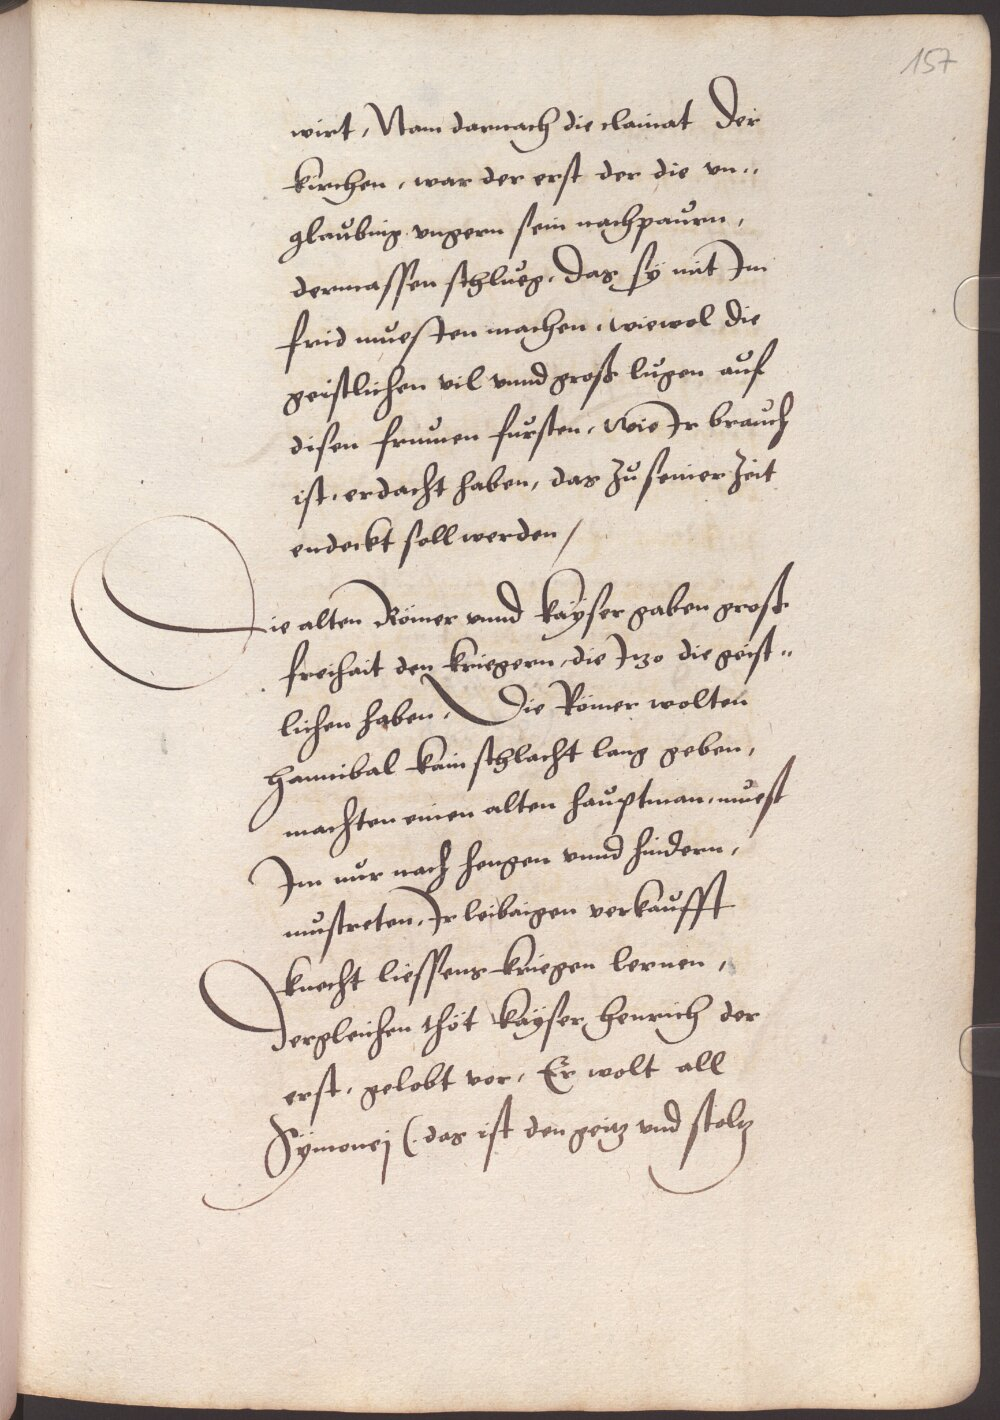 157
wirt, Nam darnach die clainat Der
kirchen, war der erst der die vn„
glaubing vngern sein nachpaurn,
dermassen schlueg, Das sÿ mit Im
frid muesten machen, wiewol die
geistlichen vil vnnd groß lugen auf
disen frumen fursten, wie Ir brauch
ist, erdacht haben, das zu seiner Zeit
endeckt soll werden /
Die alten Römer vnnd kaÿser gaben groß
freihait den kriegern, die Itzo die geist„
lichen haben, Die Römer wolten
Hannibal kain schlacht lang geben,
machten einen alten hauptman, muest
Im nur nach hengen vnnd hindern,
mustreten, Ir leibaigen verkaufft
knecht liessens kriegen lernen,
Dergleichen thöt kaÿser Henrich der
erst, gelobt vor, Er wolt all
Sÿmonej (: das ist den geitz vnd stoltz